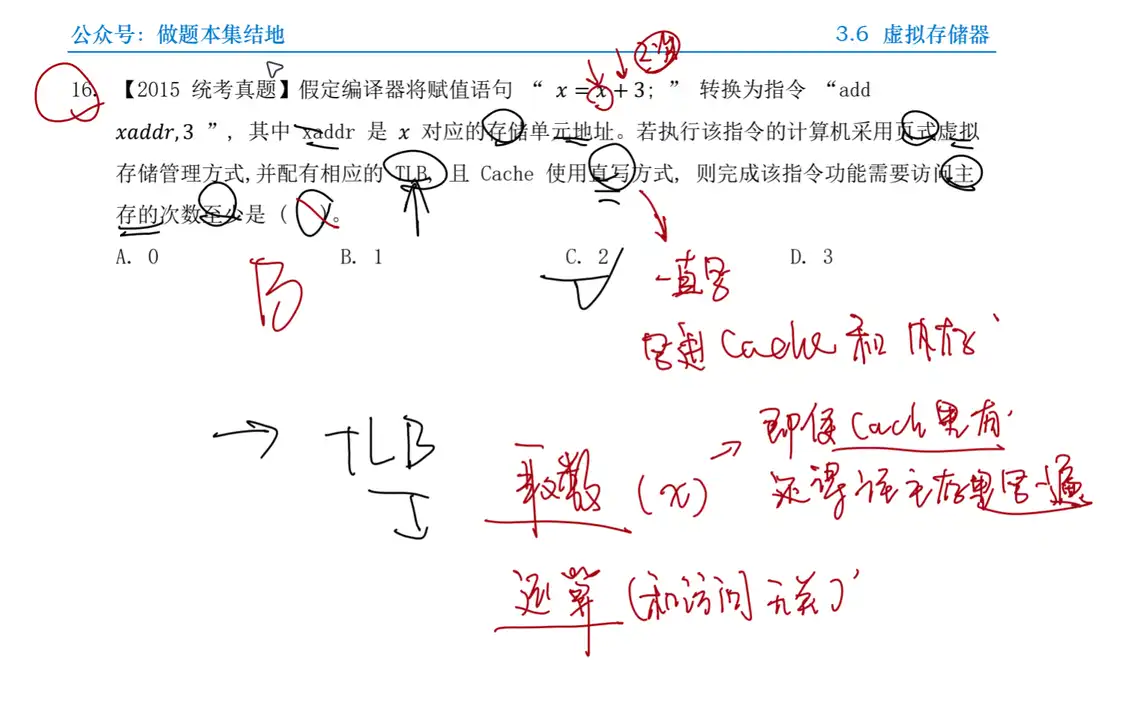 公众号：做题本集结地
3.6 虚拟存储器
16. 【2015 统考真题】假定编译器将赋值语句 “ x = x + 3; ” 转换为指令 “add
xaddr, 3 ”, 其中 xaddr 是 x 对应的存储单元地址。若执行该指令的计算机采用页式虚拟
存储管理方式,并配有相应的 TLB, 且 Cache 使用直写方式, 则完成该指令功能需要访问主
存的次数至少是 ( )。
A. 0 B. 1 C. 2 D. 3
B
一直写
写到 Cache 和 内存
→ TLB
取数 (x) → 即使 Cach里有
还得 主存里写一遍
运算 (和访问无关)